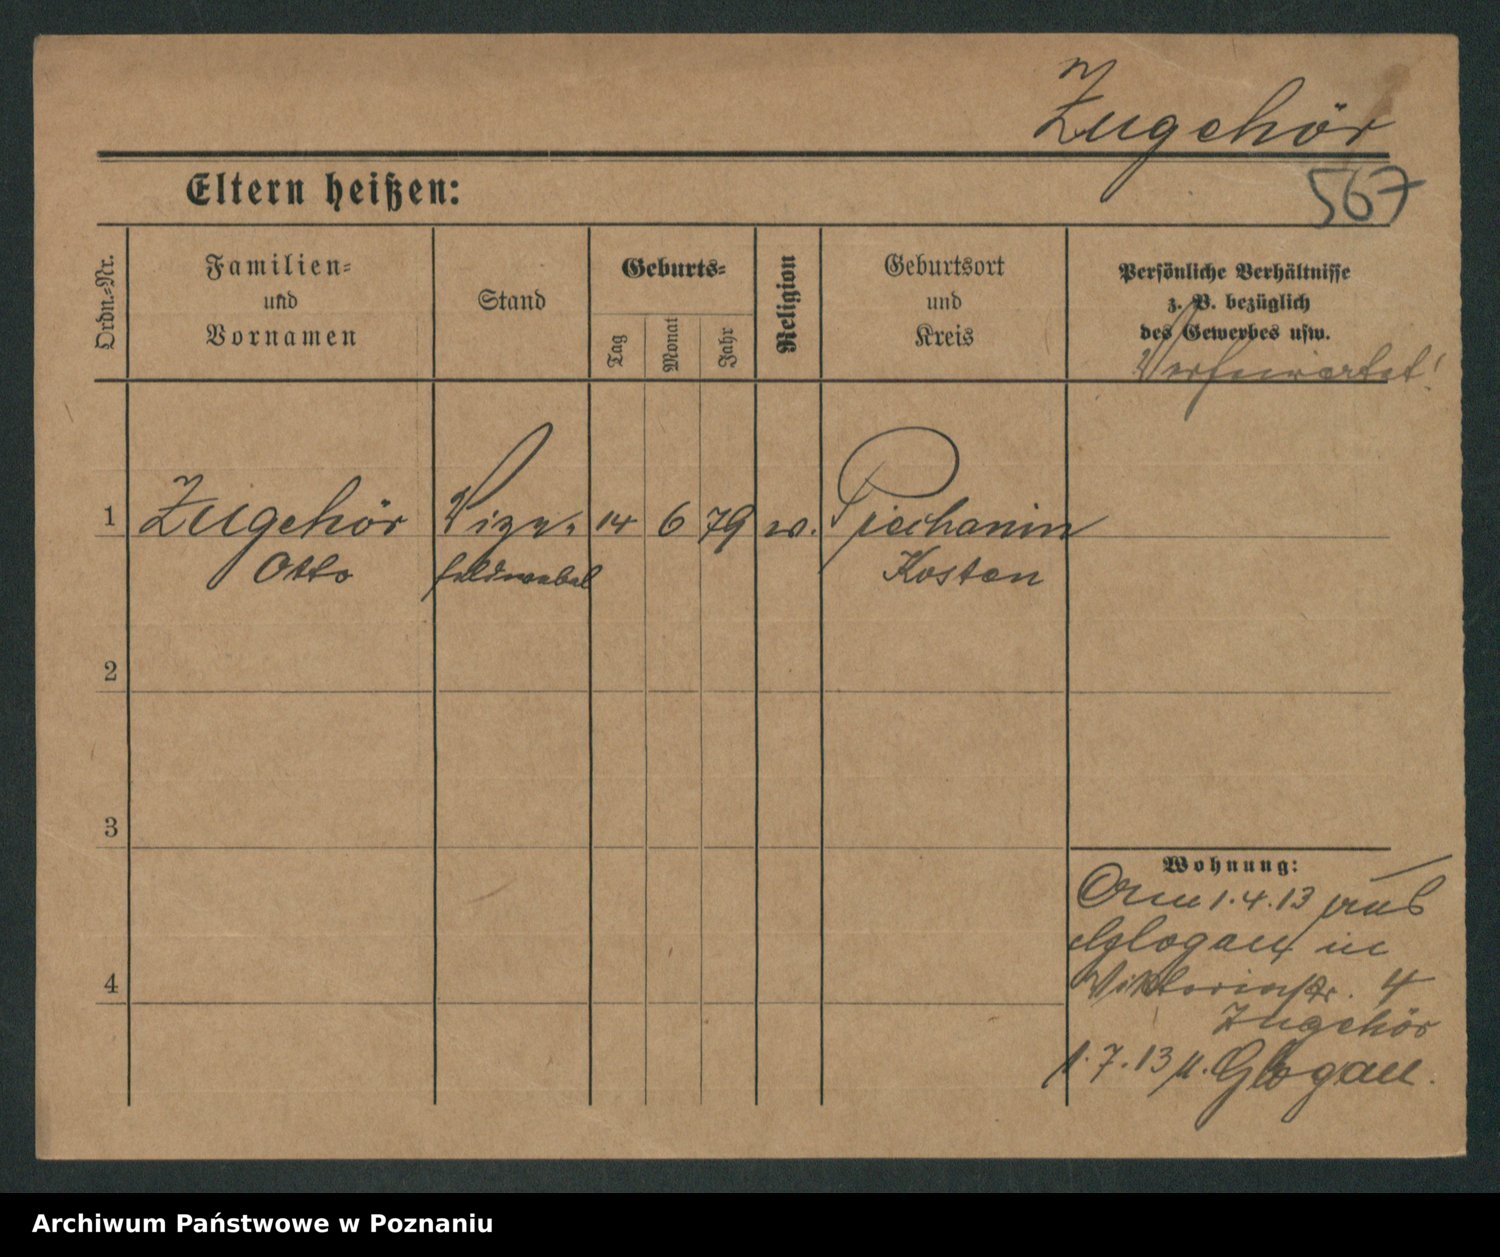 Zugehör
Eltern heißen:
567
Ordn.-Nr.
Familien-
und
Vornamen
Stand
Geburts-
Tag
Monat
Jahr
Religion
Geburtsort
und
Kreis
Persönliche Verhältnisse
z. B. bezüglich
des Gewerbes usw.
1 Zugehör Vize- 14 6 79 Piechanin
Otto feldwebel Kosten
2
3
4
Wohnung:
1.4.13 aus
Glogau in
Viktoriastr. 4
Zugehör
1.7.13 n. Glogau.
Archiwum Państwowe w Poznaniu